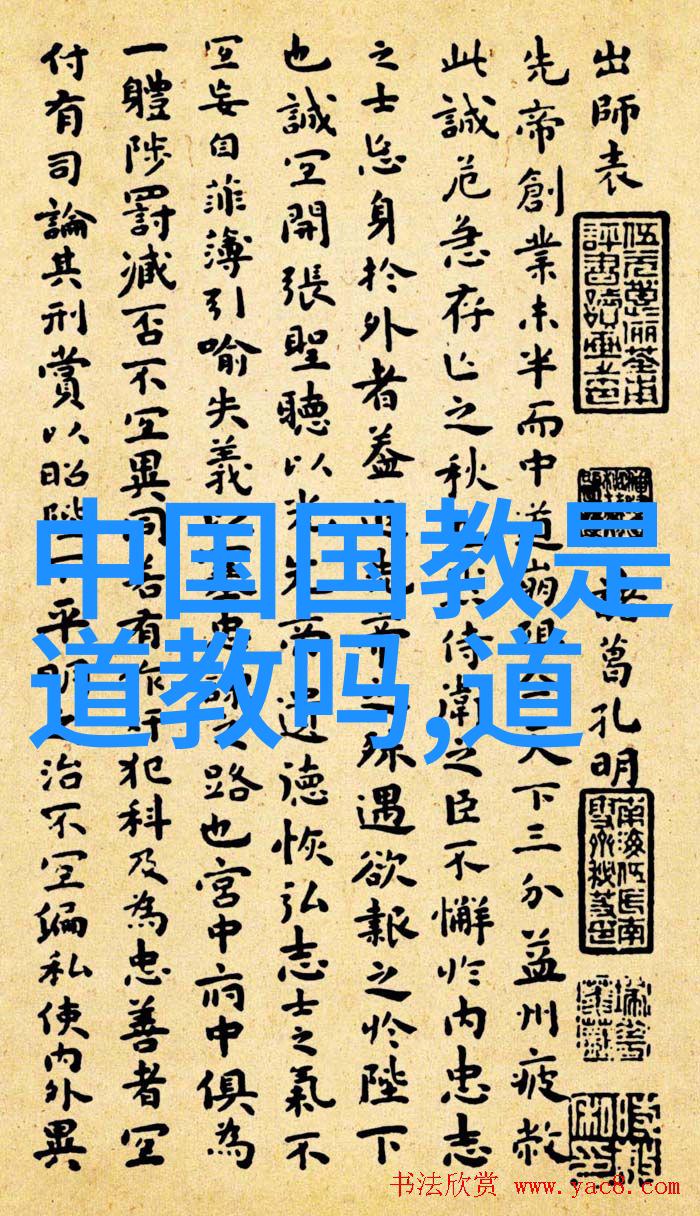 出師表
諸葛孔明
先帝創業未半而中道崩殂今天下三分益州疲敝
此誠危急存亡之秋也然侍衛之臣不懈於內忠志
之士忘身於外者蓋追先帝之殊遇欲報之於陛下
也誠宜開張聖聽以光先帝遺德恢弘志士之氣不
宜妄自菲薄引喻失義以塞忠諫之路也宮中府中俱為
一體陟罰臧否不宜異同若有作奸犯科及為忠善者宜
付有司論其刑賞以昭陛下平明之治不宜偏私使內外異
中国国教是
道教吗,道
书法欣赏 www.yac8.com